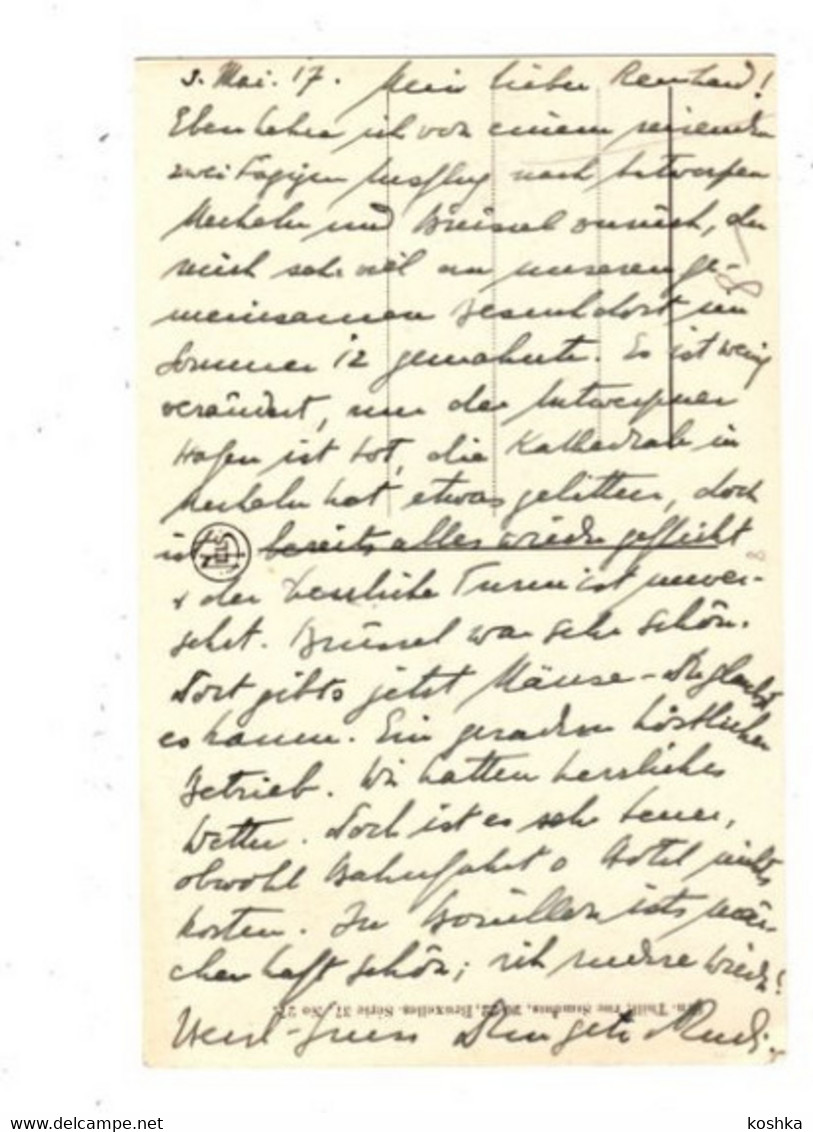 3. Mai. 17. Mein lieber Reinhard!
Eben kehre ich von einem reizenden
zweitägigen Ausflug nach Antwerpen
Mecheln und Brüssel zurück, der
mich sehr viel an unseren ge-
meinsamen Besuch dort im
Sommer 12 gemahnte. Es ist wenig
verändert, nur der Antwerpner
Hafen ist tot, die Kathedrale in
Mecheln hat etwas gelitten, doch
ist bereits alles wieder geflickt
+ der herrliche Turm ist unver-
sehrt. Brüssel war sehr schön.
Dort gibts jetzt Mäuse-
es kaum. Ein geradezu köstlicher
Betrieb. Wir hatten herrliches
Wetter. Doch ist es sehr teuer,
obwohl Bahnfahrt o Hotel nichts
kosten. In ists mär-
chenhaft schön; ich wieder!
Herzl-Gruss Rudi.
Th. rue 20-22, Bruxelles. Série 37. No 27.
koshka